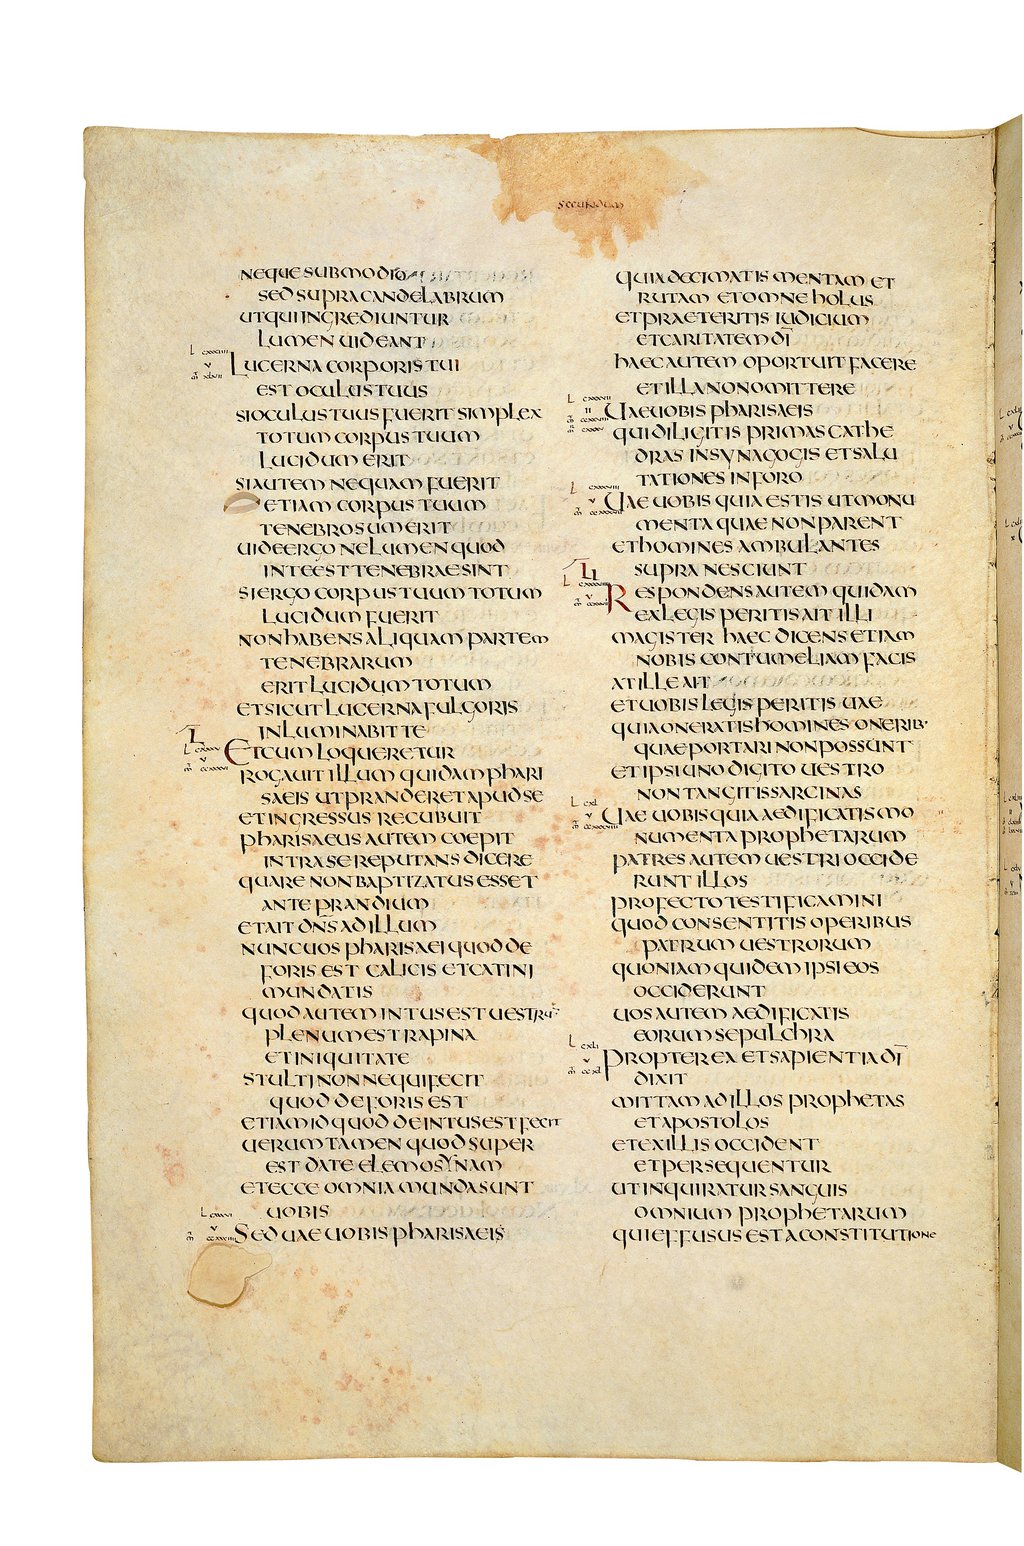 secundum
NEQUE SUB MODIO
SED SUPRA CANDELABRUM
UT QUI INGREDIUNTUR
LUMEN UIDEANT
LUCERNA CORPORIS TUI
EST OCULUS TUUS
SI OCULUS TUUS FUERIT SIMPLEX
TOTUM CORPUS TUUM
LUCIDUM ERIT
SI AUTEM NEQUAM FUERIT
ETIAM CORPUS TUUM
TENEBROSUM ERIT
UIDE ERGO NE LUMEN QUOD
IN TE EST TENEBRAE SINT
SI ERGO CORPUS TUUM TOTUM
LUCIDUM FUERIT
NON HABENS ALIQUAM PARTEM
TENEBRARUM
ERIT LUCIDUM TOTUM
ET SICUT LUCERNA FULGORIS
INLUMINABIT TE
ET CUM LOQUERETUR
ROGAUIT ILLUM QUIDAM PHARI
SAEIS UT PRANDERET APUD SE
ET INGRESSUS RECUBUIT
PHARISAEUS AUTEM COEPIT
INTRA SE REPUTANS DICERE
QUARE NON BAPTIZATUS ESSET
ANTE PRANDIUM
ET AIT DN̄S AD ILLUM
NUNC UOS PHARISAEI QUOD DE
FORIS EST CALICIS ET CATINI
MUNDATIS
QUOD AUTEM INTUS EST UESTRU·
PLENUM EST RAPINA
ET INIQUITATE
STULTI NONNE QUI FECIT
QUOD DE FORIS EST
ETIAM ID QUOD DE INTUS EST FECIT
UERUM TAMEN QUOD SUPER
EST DATE ELEMOSYNAM
ET ECCE OMNIA MUNDA SUNT
UOBIS
SED UAE UOBIS PHARISAEIS
QUIA DECIMATIS MENTAM ET
RUTAM ET OMNE HOLUS
ET PRAETERITIS IUDICIUM
ET CARITATEM DĪ
HAEC AUTEM OPORTUIT FACERE
ET ILLA NON OMITTERE
UAE UOBIS PHARISAEIS
QUI DILIGITIS PRIMAS CATHE
DRAS IN SYNAGOGIS ET SALU
TATIONES IN FORO
UAE UOBIS QUIA ESTIS UT MONU
MENTA QUAE NON PARENT
ET HOMINES AMBULANTES
SUPRA NESCIUNT
RESPONDENS AUTEM QUIDAM
EX LEGIS PERITIS AIT ILLI
MAGISTER HAEC DICENS ETIAM
NOBIS CONTUMELIAM FACIS
AT ILLE AIT
ET UOBIS LEGIS PERITIS UAE
QUIA ONERATIS HOMINES ONERIB·
QUAE PORTARI NON POSSUNT
ET IPSI UNO DIGITO UESTRO
NON TANGITIS SARCINAS
UAE UOBIS QUIA AEDIFICATIS MO
NUMENTA PROPHETARUM
PATRES AUTEM UESTRI OCCIDE
RUNT ILLOS
PROFECTO TESTIFICAMINI
QUOD CONSENTITIS OPERIBUS
PATRUM UESTRORUM
QUONIAM QUIDEM IPSI EOS
OCCIDERUNT
UOS AUTEM AEDIFICATIS
EORUM SEPULCHRA
PROPTEREA ET SAPIENTIA DĪ
DIXIT
MITTAM AD ILLOS PROPHETAS
ET APOSTOLOS
ET EX ILLIS OCCIDENT
ET PERSEQUENTUR
UT INQUIRATUR SANGUIS
OMNIUM PROPHETARUM
QUI EFFUSUS EST A CONSTITUTIONE